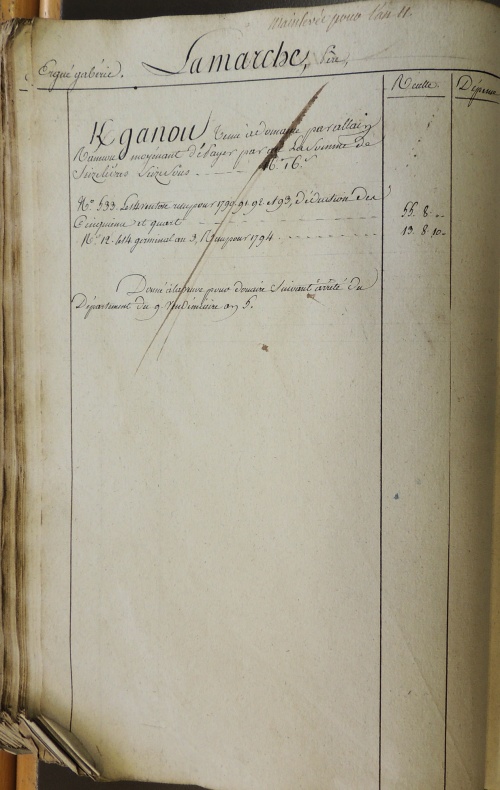 mainlevée pour l'an 11.
Ergué gabéric. Lamarche, Père,
Recette. Dépense
Kganou Tenu à domaine par allain
Nannou moyénant d'épayer par an La somme de
Seize livres Seize sous 16.# 16.s
N.o 533 reçu pour 1790, 91, 92 et 93, déduction des
Cinquième et quart 55. 8. "
N.o 12. le 14 germinal an 3, Reçu pour 1794 13. 8. 10.
Donné à la preuve pour domaine Suivant arrêté du
Département du 9 Vendémiaire an 5.